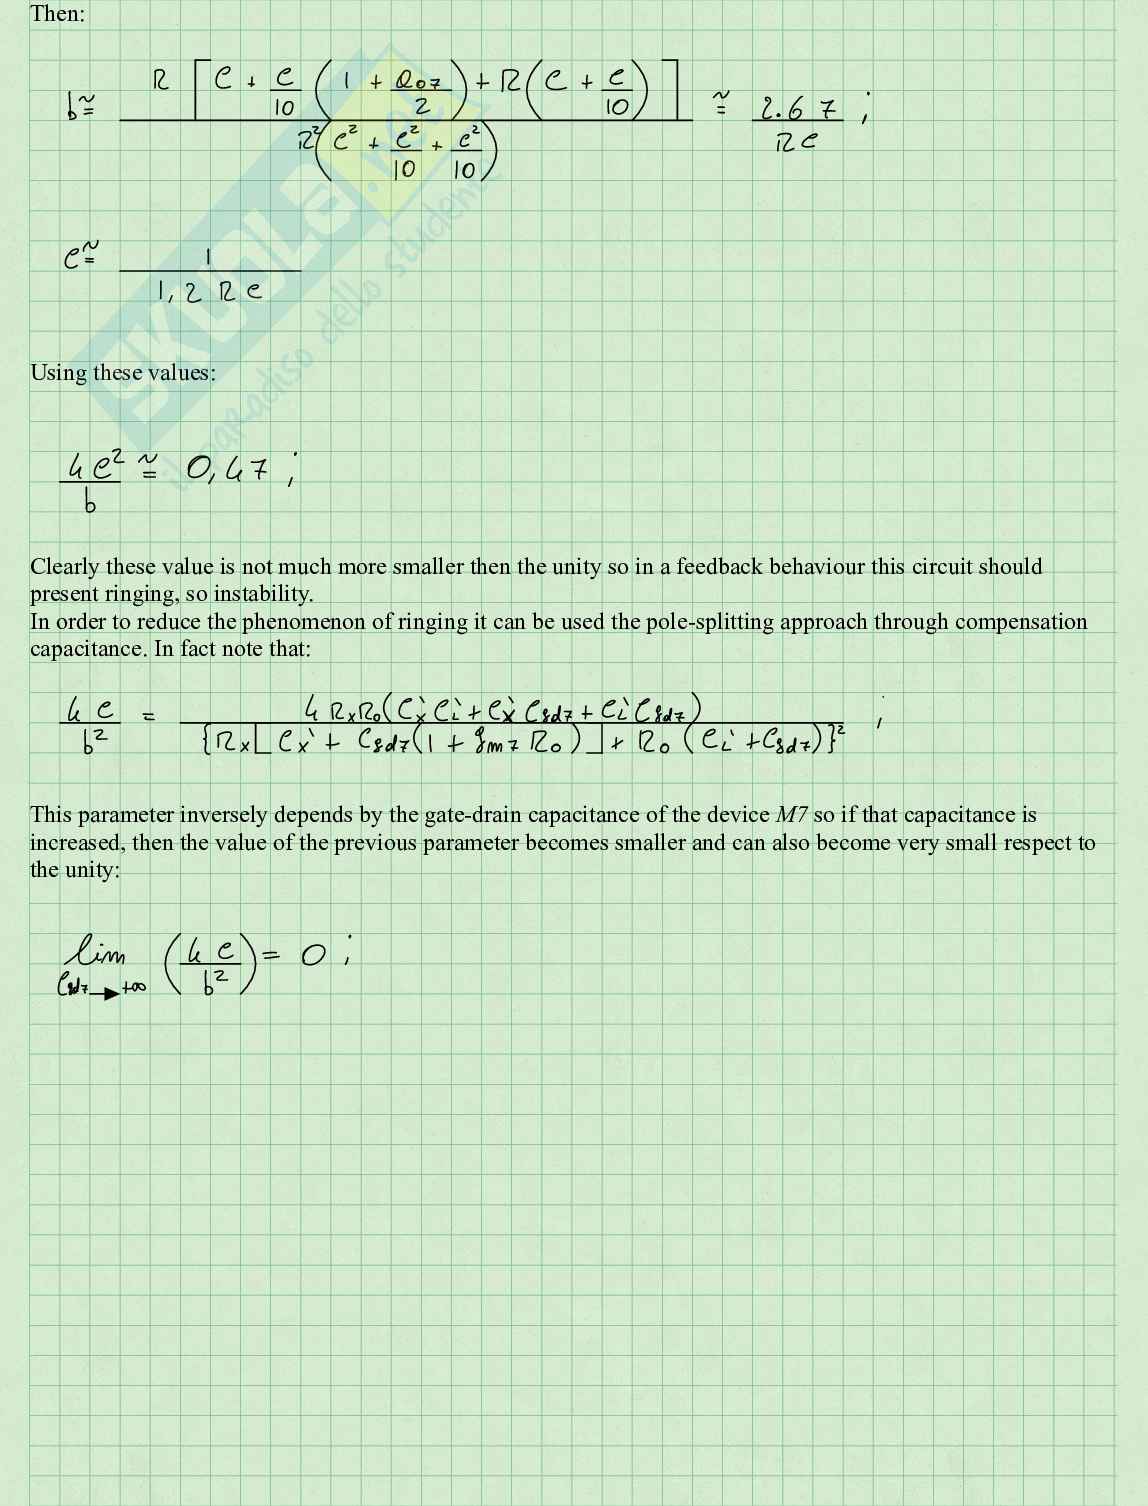 Then:
b ≅ R [ C + C/10 ( 1 + a07/2 ) + R ( C + C/10 ) ] / R² ( C² + C²/10 + C²/10 ) ≅ 2.67 / RC ;
c ≅ 1 / 1,2 RC
Using these values:
4c² / b ≅ 0,47 ;
Clearly these value is not much more smaller then the unity so in a feedback behaviour this circuit should
present ringing, so instability.
In order to reduce the phenomenon of ringing it can be used the pole-splitting approach through compensation
capacitance. In fact note that:
4c / b² = 4 RxRo ( Cx' Ci' + Cx' Cgd7 + Ci' Cgd7 ) / { Rx [ Cx' + Cgd7 ( 1 + gm7 Ro ) ] + Ro ( Ci' + Cgd7 ) }² ;
This parameter inversely depends by the gate-drain capacitance of the device M7 so if that capacitance is
increased, then the value of the previous parameter becomes smaller and can also become very small respect to
the unity:
lim Cgd7 → +∞ ( 4c / b² ) = 0 ;
SKUOLA.net
il paradiso dello studente